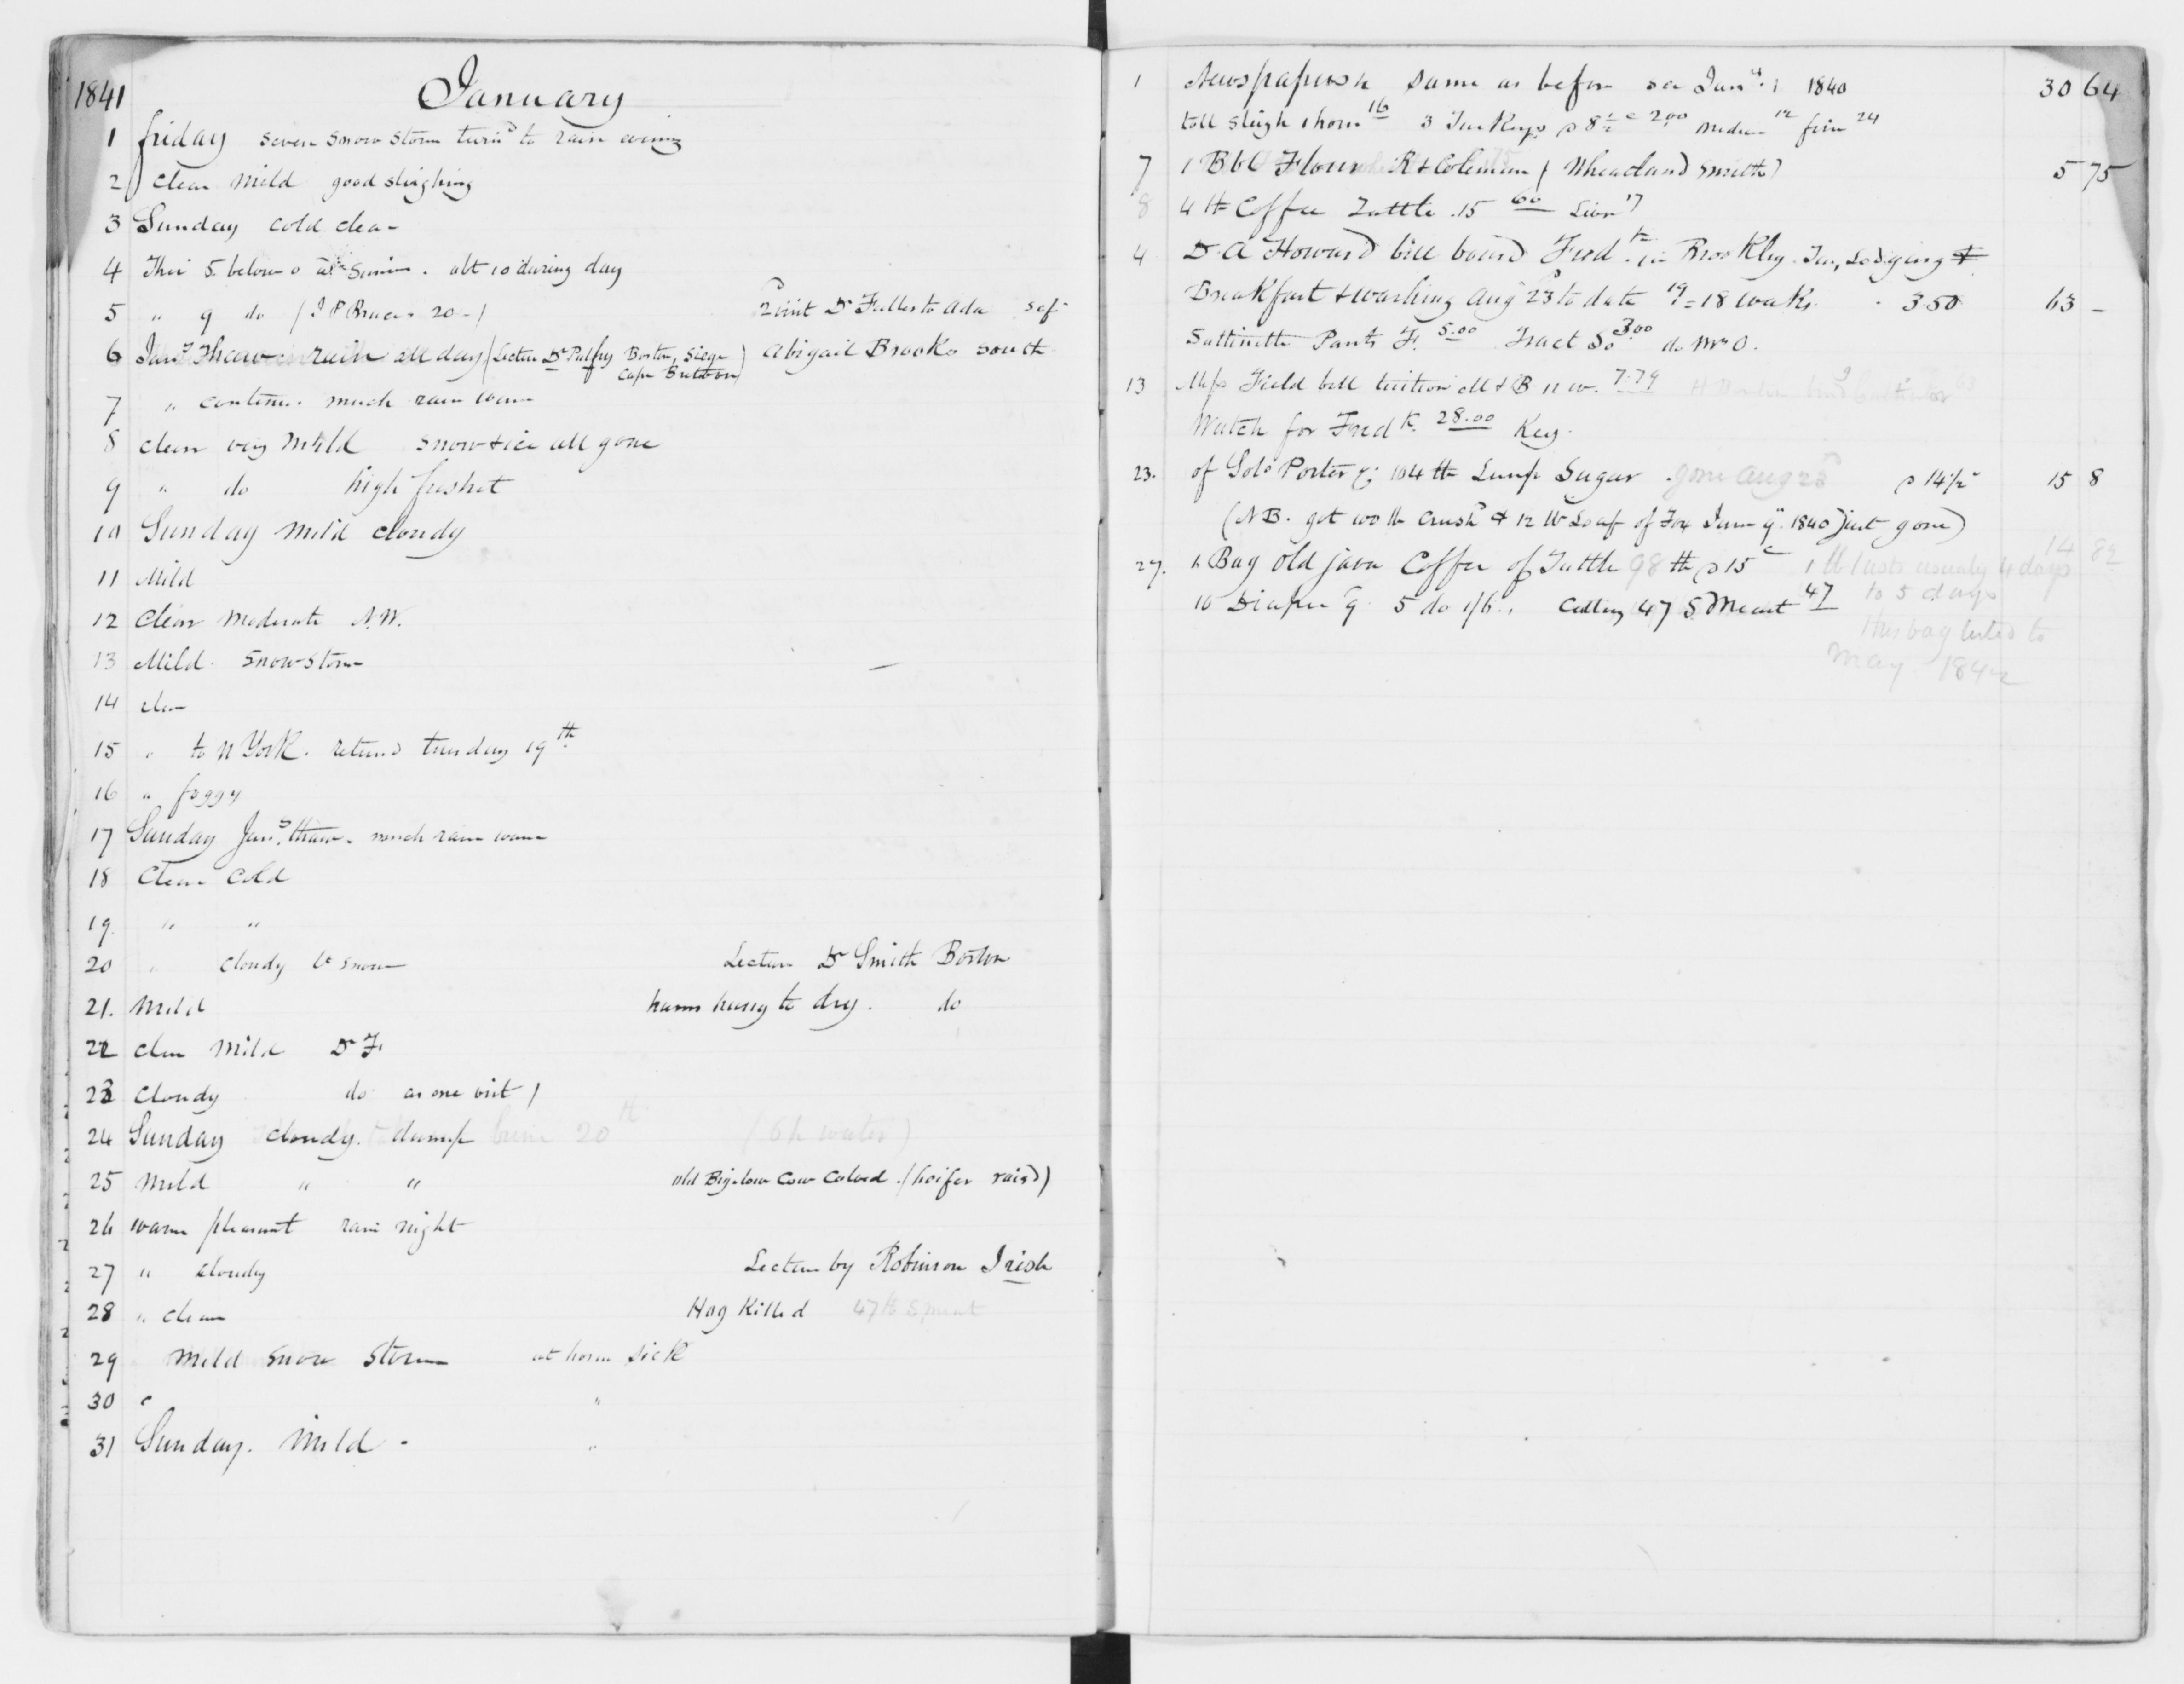 1841 January
1 friday severe snow storm turnd to rain evning
2 Clear mild good sleighing
3 Sunday cold clear
4 Ther 5 below 0 at Sunrise. abt 10 during day
5 " 9 do (J P Bruces 20-) 2 visit Dr Fuller to Ada
6 Jany Thaw rain all day (Lecture Dr Palfrey Boston, Siege Cape Breton) Abigail Brooks south
7 " continu. much rain warm
8 clear very mild snow & ice all gone
9 " do high freshet
10 Sunday mild cloudy
11 Mild
12 Clear moderate N.W.
13 Mild. Snow storm
14 clear
15 " to N York. returnd tuesday 19th
16 " foggy
17 Sunday Jany thaw. much rain warm
18 Clear Cold
19. " "
20 " cloudy lt snow Lecture Dr Smith Boston
21. mild hams hung to dry. do
22 clear mild Dr F.
23 cloudy do as one visit)
24 Sunday cloudy. damp 20th (6 h water)
25 mild " " old Bigelow Cow Calved. (heifer raisd)
26 warm pleasant rain night
27 " cloudy Lecture by Robinson Irish
28 " clear Hog Killed 47 lb S meat
29 mild snow storm at home sick
30 " "
31 Sunday. mild - "
1 Newspapers same as before see Jany 1 1840 30 64
toll sleigh 1 horse 16 3 Turkeys @ 8½ c 2.00 12 24
7 1 Bbl Flour R & Coleman (Wheatland Smith) 5 75
8 4 lb Coffee Tuttle .15 60
4 D. A Howard bill board Fredk in Brooklyn. Tea, Lodging &
Breakfast & washing Augt 23d to date 19 = 18 weeks. 3.50 63 -
Sattinett Pants F. 5.00 Tract So 3.00 do Mr O.
13 Miss Field bill tuition M & B 11 w. 7.79
Watch for Fredk. 28.00 Key.
23. of Solo Porter 104 lb Lump Sugar. gone Aug 23d @ 14½ 15 8
(NB. got 100 lb crushd & 12 lb Loaf of Fox Jany 9. 1840 just gone)
27. 1 Bag old java Coffee of Tuttle 98 lb @ 15c 1 lb lasts usually 4 days 14 82
10 Diaper 9 5 do 1/6., Cutting 47 S Meat 47 to 5 days
this bag lasted to
May 1842